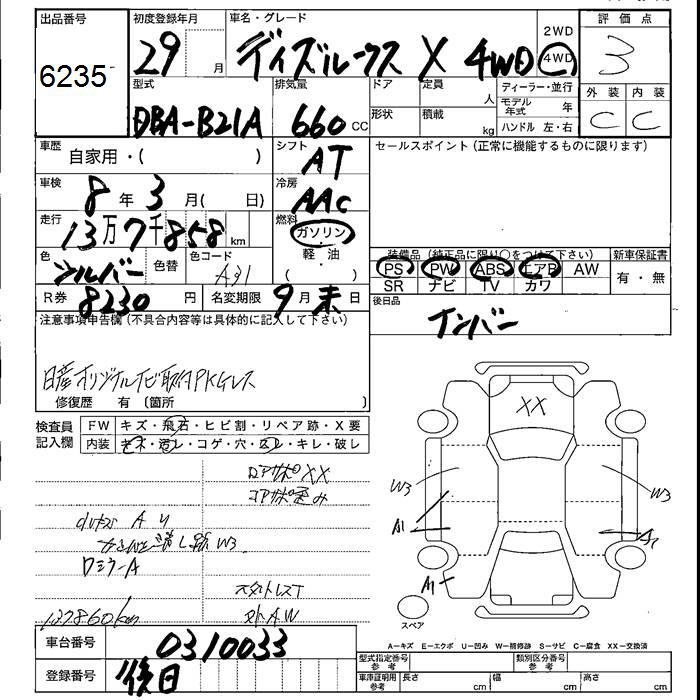 出品番号 初度登録年月 車名・グレード 2WD 評価点
6235 29 月 デイズルークス X 4WD 4WD 3
型式 排気量 ドア 定員 ディーラー・並行 外装 内装
DBA-B21A 660 CC 人 モデル年式 年 C C
形状 積載 kg ハンドル 左・右
車歴 自家用・( ) シフト AT セールスポイント (正常に機能するものに限ります)
車検 8 年 3 月 ( 日) 冷房 AAC
走行 13万7千858 km 燃料 ガソリン
軽・油
( )
色 シルバー 色替 色コード A31
装備品 (純正品に限り○をつけて下さい) 新車保証書
PS PW ABS エアB AW 有・無
SR ナビ TV カワ
R券 8230 円 名変期限 9 月 末 日
後日品
インバー
注意事項申告欄 (不具合内容等は具体的に記入して下さい)
日産オリジナルナビ取付PKGレス
修復歴 有 〔箇所 〕
検査員記入欄 FW キズ・飛石・ヒビ割・リペア跡・X要
内装 キズ・汚レ・コゲ・穴・スレ・キレ・破レ
コアサポXX
コアサポ歪み
A U
W3
ロミラーA
137860km
スタットレスT
社外AW
XX
W3
W3
A1
A1
A1
スペア
A-キズ E-エクボ U-凹み W-補修跡 S-サビ C-腐食 XX-交換済
車台番号 0310033
登録番号 後日
型式指定番号 参考 類別区分番号 参考
車庫証明用 参考 長さ cm 幅 cm 高さ cm